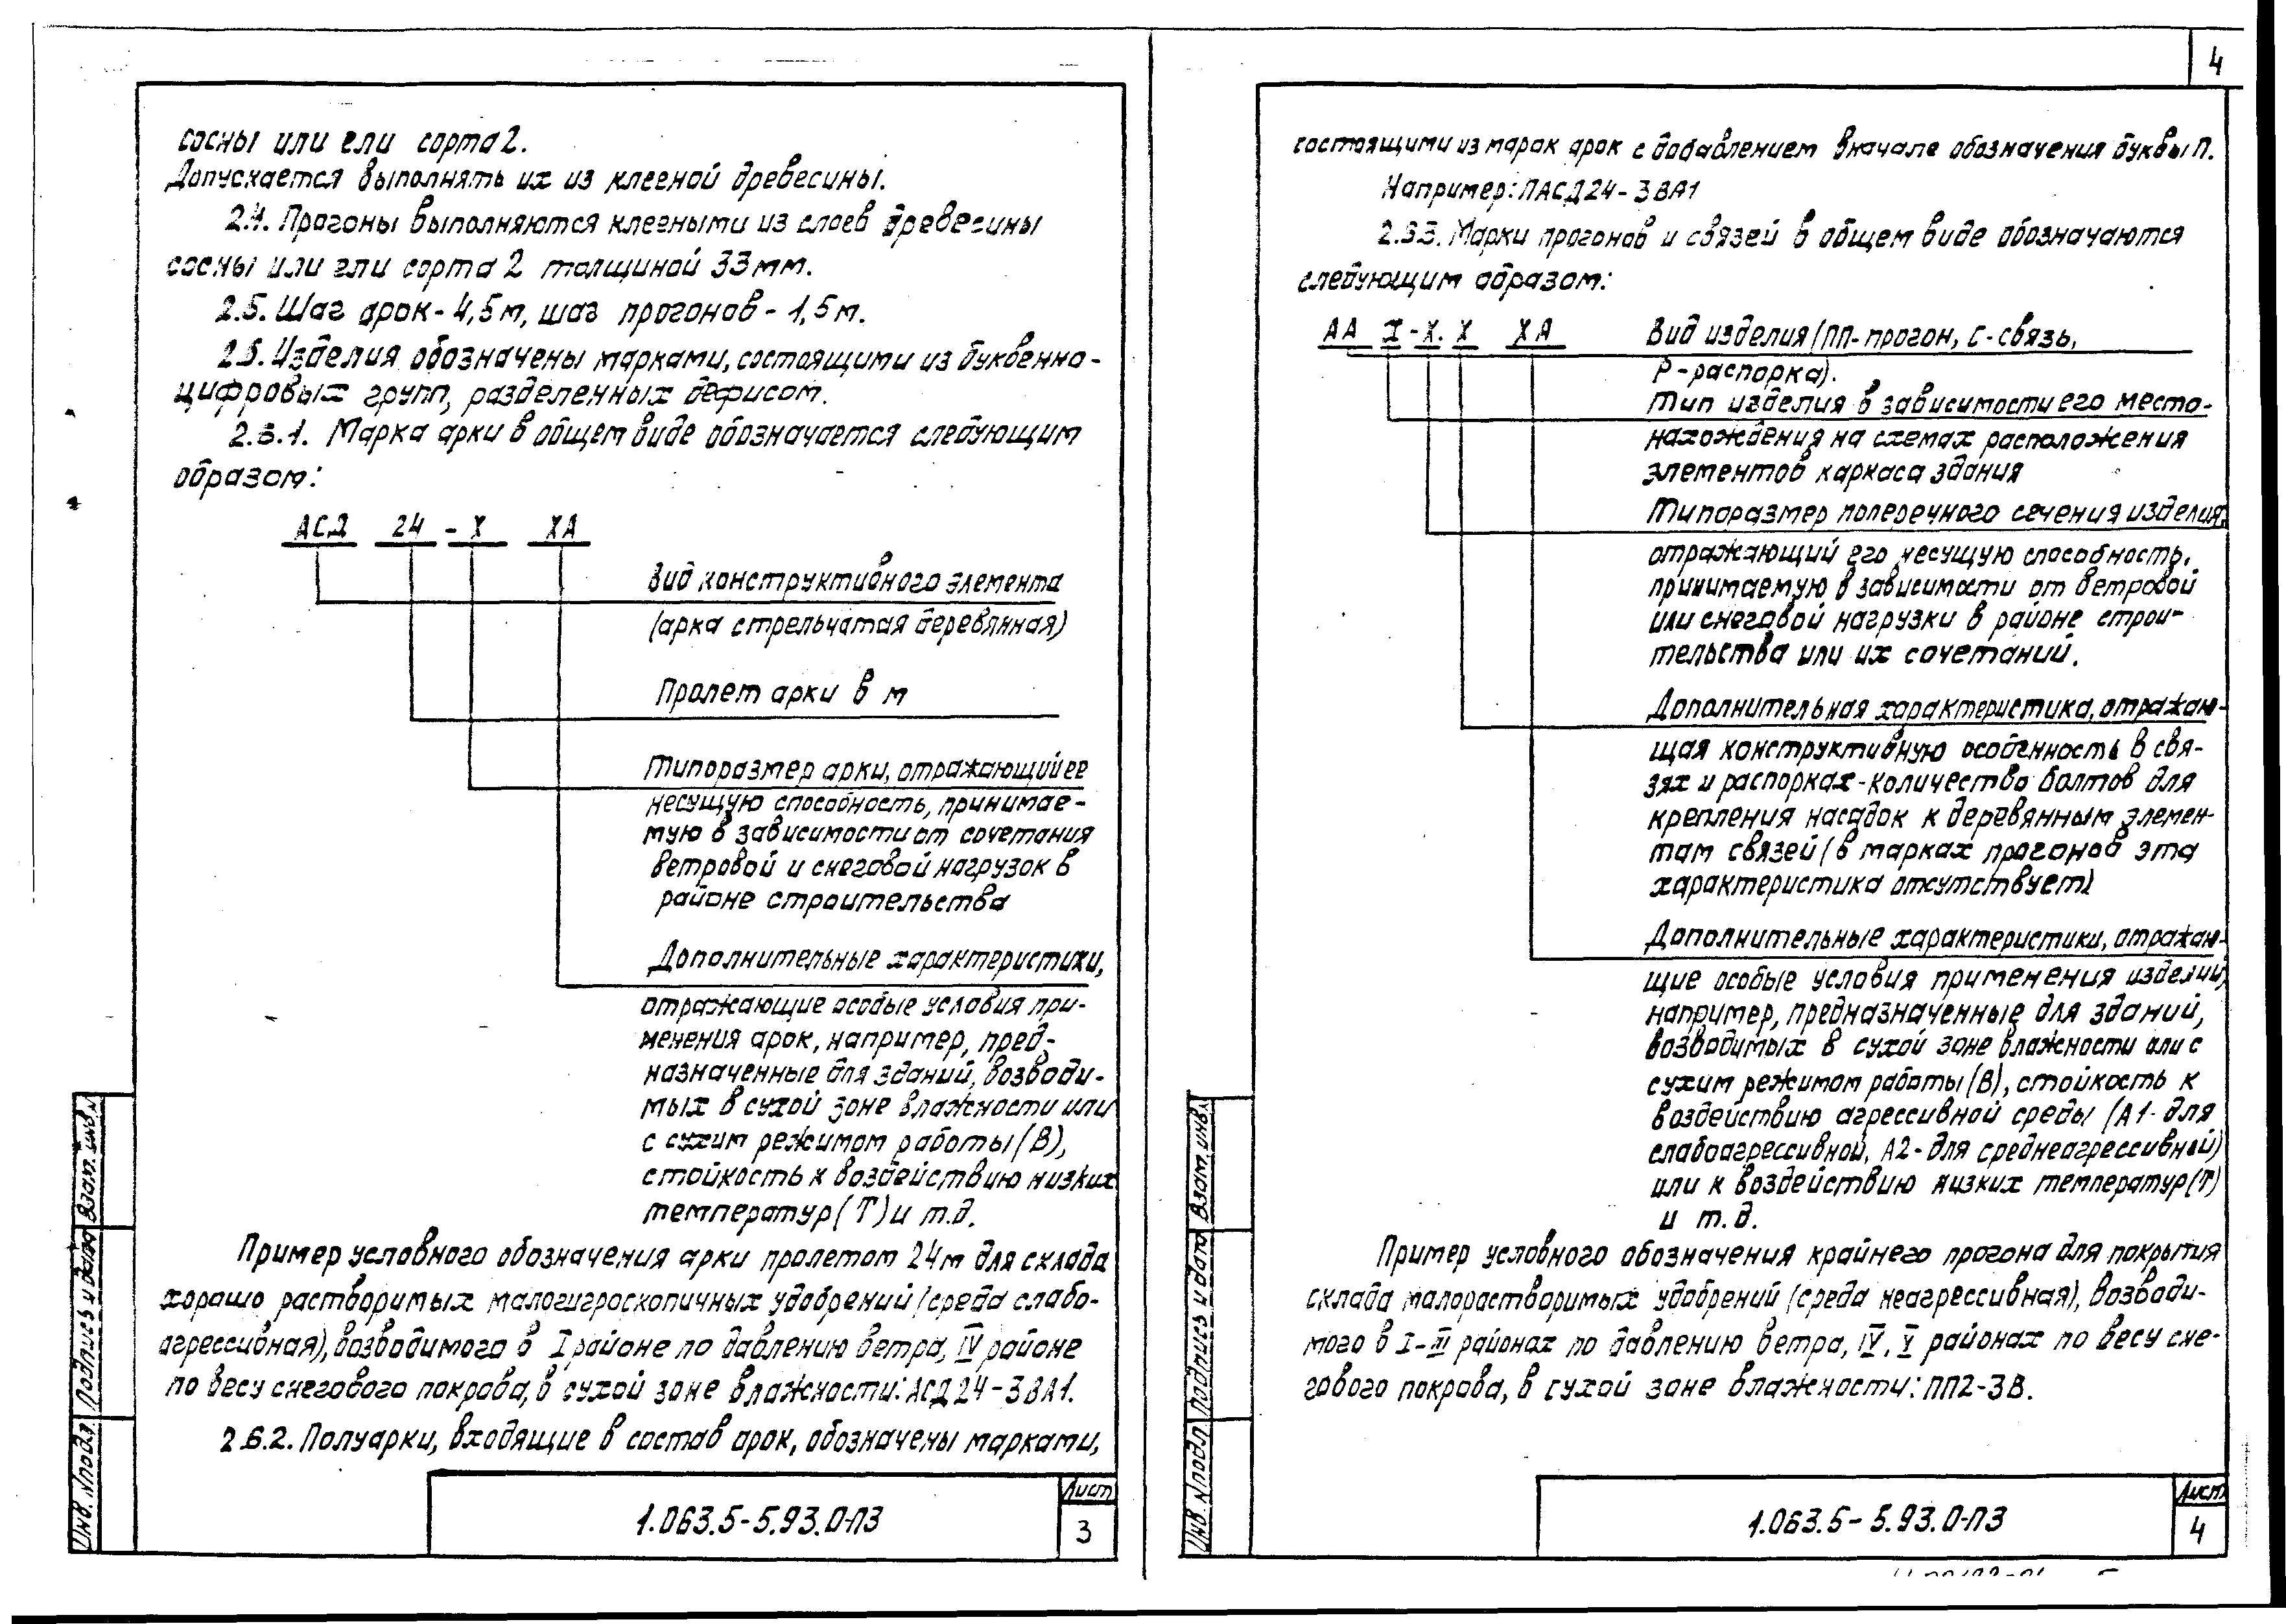 сосны или ели сорта 2.
Допускается выполнять их из клееной древесины.
2.4. Прогоны выполняются клееными из слоев древесины
сосны или ели сорта 2 толщиной 33 мм.
2.5. Шаг арок - 4,5 м, шаг прогонов - 1,5 м.
2.6. Изделия обозначены марками, состоящими из буквенно-
цифровых групп, разделенных дефисом.
2.6.1. Марка арки в общем виде обозначается следующим
образом:
АСД 24 - Х ХА
Вид конструктивного элемента
(арка стрельчатая деревянная)
Пролет арки в м
Типоразмер арки, отражающий ее
несущую способность, принимае-
мую в зависимости от сочетания
ветровой и снеговой нагрузок в
районе строительства
Дополнительные характеристики,
отражающие особые условия при-
менения арок, например, пред-
назначенные для зданий, возводи-
мых в сухой зоне влажности или
с сухим режимом работы (В),
стойкость к воздействию низких
температур (Т) и т.д.
Пример условного обозначения арки пролетом 24 м для склада
хорошо растворимых малогигроскопичных удобрений (среда слабо-
агрессивная), возводимого в I районе по давлению ветра, IV районе
по весу снегового покрова, в сухой зоне влажности: АСД 24-3ВА1.
2.6.2. Полуарки, входящие в состав арок, обозначены марками,
1.063.5-5.93.0-ПЗ
Лист
3
Инв. № подл.
Подпись и дата
Взам. инв. №
4
состоящими из марок арок с добавлением вначале обозначения буквы П.
Например: ПАСД 24-3ВА1
2.6.3. Марки прогонов и связей в общем виде обозначаются
следующим образом:
АА Х - Х. Х ХА
Вид изделия (ПП-прогон, С-связь,
Р-распорка).
Тип изделия в зависимости его место-
нахождения на схемах расположения
элементов каркаса здания
Типоразмер поперечного сечения изделия,
отражающий его несущую способность,
принимаемую в зависимости от ветровой
или снеговой нагрузки в районе строи-
тельства или их сочетаний.
Дополнительная характеристика, отражаю-
щая конструктивную особенность в свя-
зях и распорках - количество болтов для
крепления насадок к деревянным элемен-
там связей (в марках прогонов эта
характеристика отсутствует)
Дополнительные характеристики, отражаю-
щие особые условия применения изделий,
например, предназначенные для зданий,
возводимых в сухой зоне влажности или с
сухим режимом работы (В), стойкость к
воздействию агрессивной среды (А1- для
слабоагрессивной, А2- для среднеагрессивной)
или к воздействию низких температур (Т)
и т.д.
Пример условного обозначения крайнего прогона для покрытия
склада малорастворимых удобрений (среда неагрессивная), возводи-
мого в I-III районах по давлению ветра, IV, V районах по весу сне-
гового покрова, в сухой зоне влажности: ПП2-3В.
1.063.5-5.93.0-ПЗ
Лист
4
Инв. № подл.
Подпись и дата
Взам. инв. №